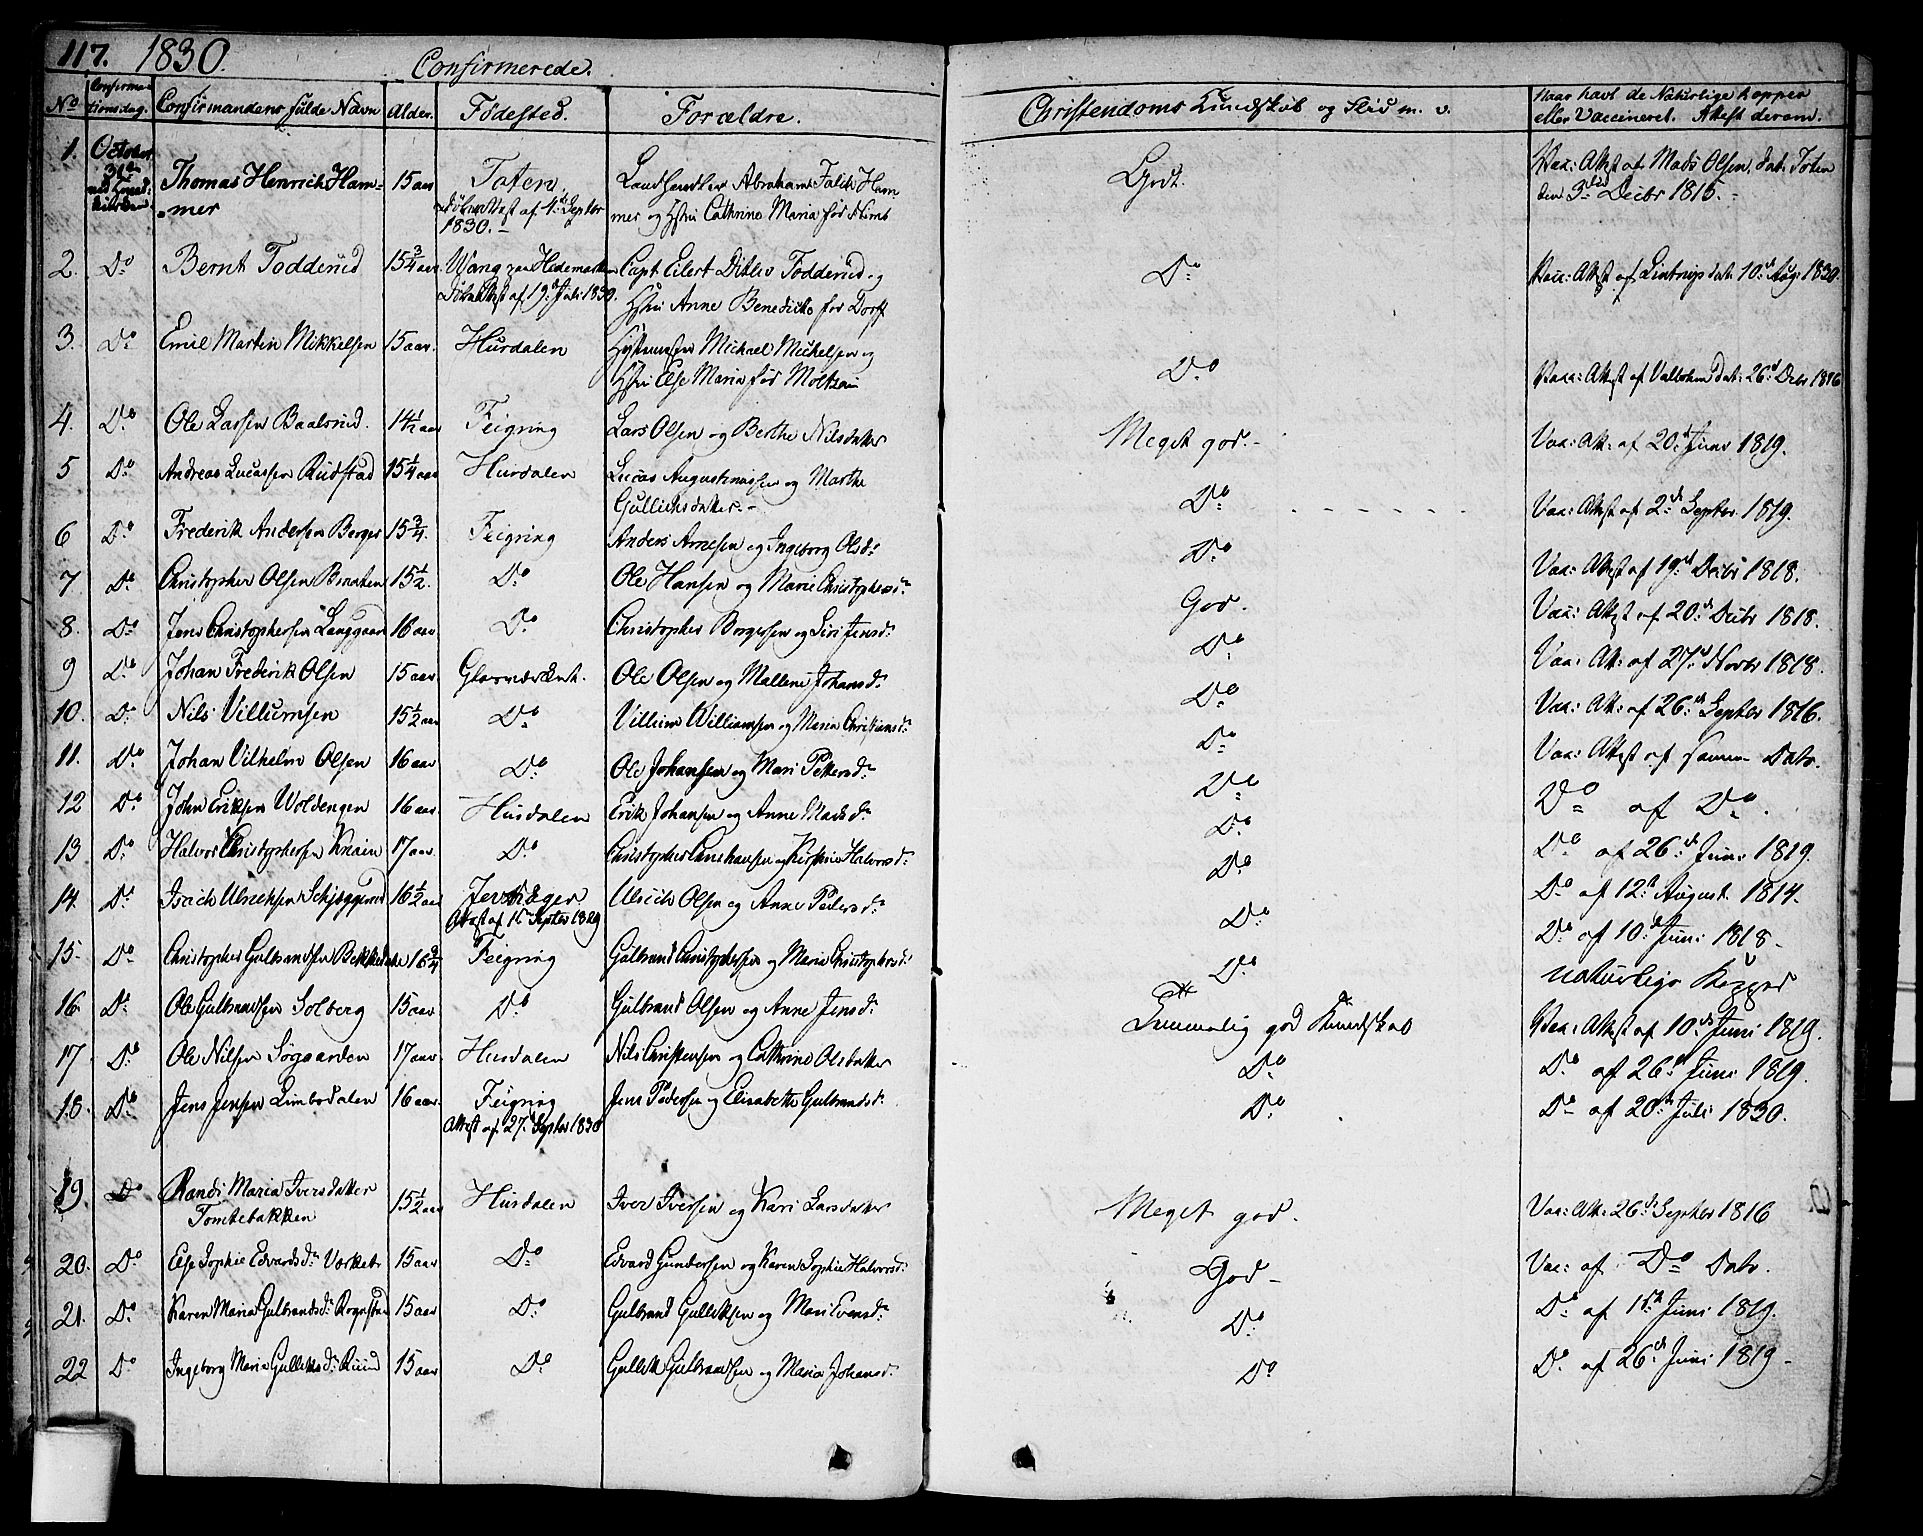 117. 1830. Confirmerede.
No Confirmationsdag. Confirmandens fulde Navn Alder. Fødested. Forældre. Christendoms Kundskab og Flid m. v. Naar havt de Naturlige Kopper
eller Vaccineret. Attest derom.
1. October 31te Thomas Henrich Ham= 15 aar Toten. Landhandler Abraham Falch Ham Godt. Vax: Attest af Mads Olsen, dat: Toten
mer Døbe Attest af 4de Septbr mer og Hstru Cathrine Maria før den 3die Decbr 1815.
1830.
2. Do Bernt Todderud 15 3/4 aar Wang paa Hedemarken Capt: Eilert Ditlev Todderud og Do Vax: Attest af dat: 10de Aug: 1830.
Døbe Attest af 19de Juli 1830. Hstru Anne Benedicte før Dorff
3. Do Emil Martin Mikkelsen 15 aar. Hurdalen Michael Mickelsen og
Hstru Else Maria før Do Vaxx: Attest af dat: 26d Decbr 1816
4. Do Ole Larsen Baalsrud. 14 1/2 aar Feigring Lars Olsen og Berthe Nilsdatter Meget god. Vax: Att: af 20de Juni 1819.
5 Do Andreas Lucassen Rudstad 15 1/4 aar Hurdalen Lucas Augustinussen og Marthe
Gullichsdatter. Do Vax: Attest af 2de Septbr 1819.
6 Do Frederik Andersen Berger 15 3/4. Feigring Anders Arnesen og Ingeborg Olsd: Do Vax: Attest af 19de Decbr 1818.
7 Do Christopher Olsen Braaten 15 1/2. Do Ole Hansen og Marie Christophersd: God. Vax: Attest af 20de Decbr 1818.
8. Do Jens Christophersen Langgaard 16 aar Do Christopher Borgersen og Siri Jensd: Do Vax: Att: af 27de Novbr 1818.
9 Do Johan Frederik Olsen 15 aar Glasværket. Ole Olsen og Mallene Johansd: Do Vax: Att: af 26de Septbr 1816.
10. Do Nils Villumsen 15 1/2 aar Do Villum Williamsen og Maria Christiansd: Do Vax: Attest af samme Dato.
11. Do Johan Vilhelm Olsen 16 aar Do Ole Johansen og Mari Pettersd: Do Do af Do.
12 Do John Eriksen Woldengen 16 aar. Hurdalen Erik Johansen og Anne Madsd: Do Do af 26de Juni 1819.
13. Do Halvor Christophersen Knain 17 aar. Do Christopher og Kirstine Halvorsd: Do Do af 12te August 1814.
14. Do Isach Ulrichsen 16 1/2 aar
Attest af Septbr 1829 Ulrich Olsen og Anne Pedersd: Do Do af 10de Juni 1818
15. Do Christopher Gulbrandsen 16 3/4 Feigring Gulbrand Christophersen og Maria Christophersd: Do naturlige Kopper
16. Do Ole Gulbrandsen Solberg 15 aar Do Gulbrand Olsen og Anne Jensd: Temmelig god Kundskab Vax: Attest af 10de Juni 1819.
17 Do Ole Nilsen Søgaarden 17 aar Hurdalen Nils Christensen og Cathrine Olsdatter Do Do af 26de Juni 1819.
18. Do Jens Jensen Limbodalen 16 aar Feigring Jens Pedersen og Elisabeth Gulbrandsd: Do Do af 20de Juli 1830.
Attest af 27de Septbr 1830
19. Do Randi Maria Iversdatter 15 1/2 aar Hurdalen Iver Iversen og Kari Larsdatter Meget god. Vax: Att: 26de Septbr 1816
Tomtebakken
20. Do Else Sophie Edvardsd: Værket 15 aar Do Edvard Gundersen og Karen Sophie Halvorsd: God Vax: af Do Dato.
21. Do Karen Maria Gulbrandsd: Rognstad 15 aar Do Gulbrand Gulliksen og Mari Evensd: Do Do af Juni 1819.
22 Do Ingeborg Maria Gulliksd: Ruud 15 aar Do Gullik Gulbrandsen og Maria Johansd: Do Do af 26de Juni 1819